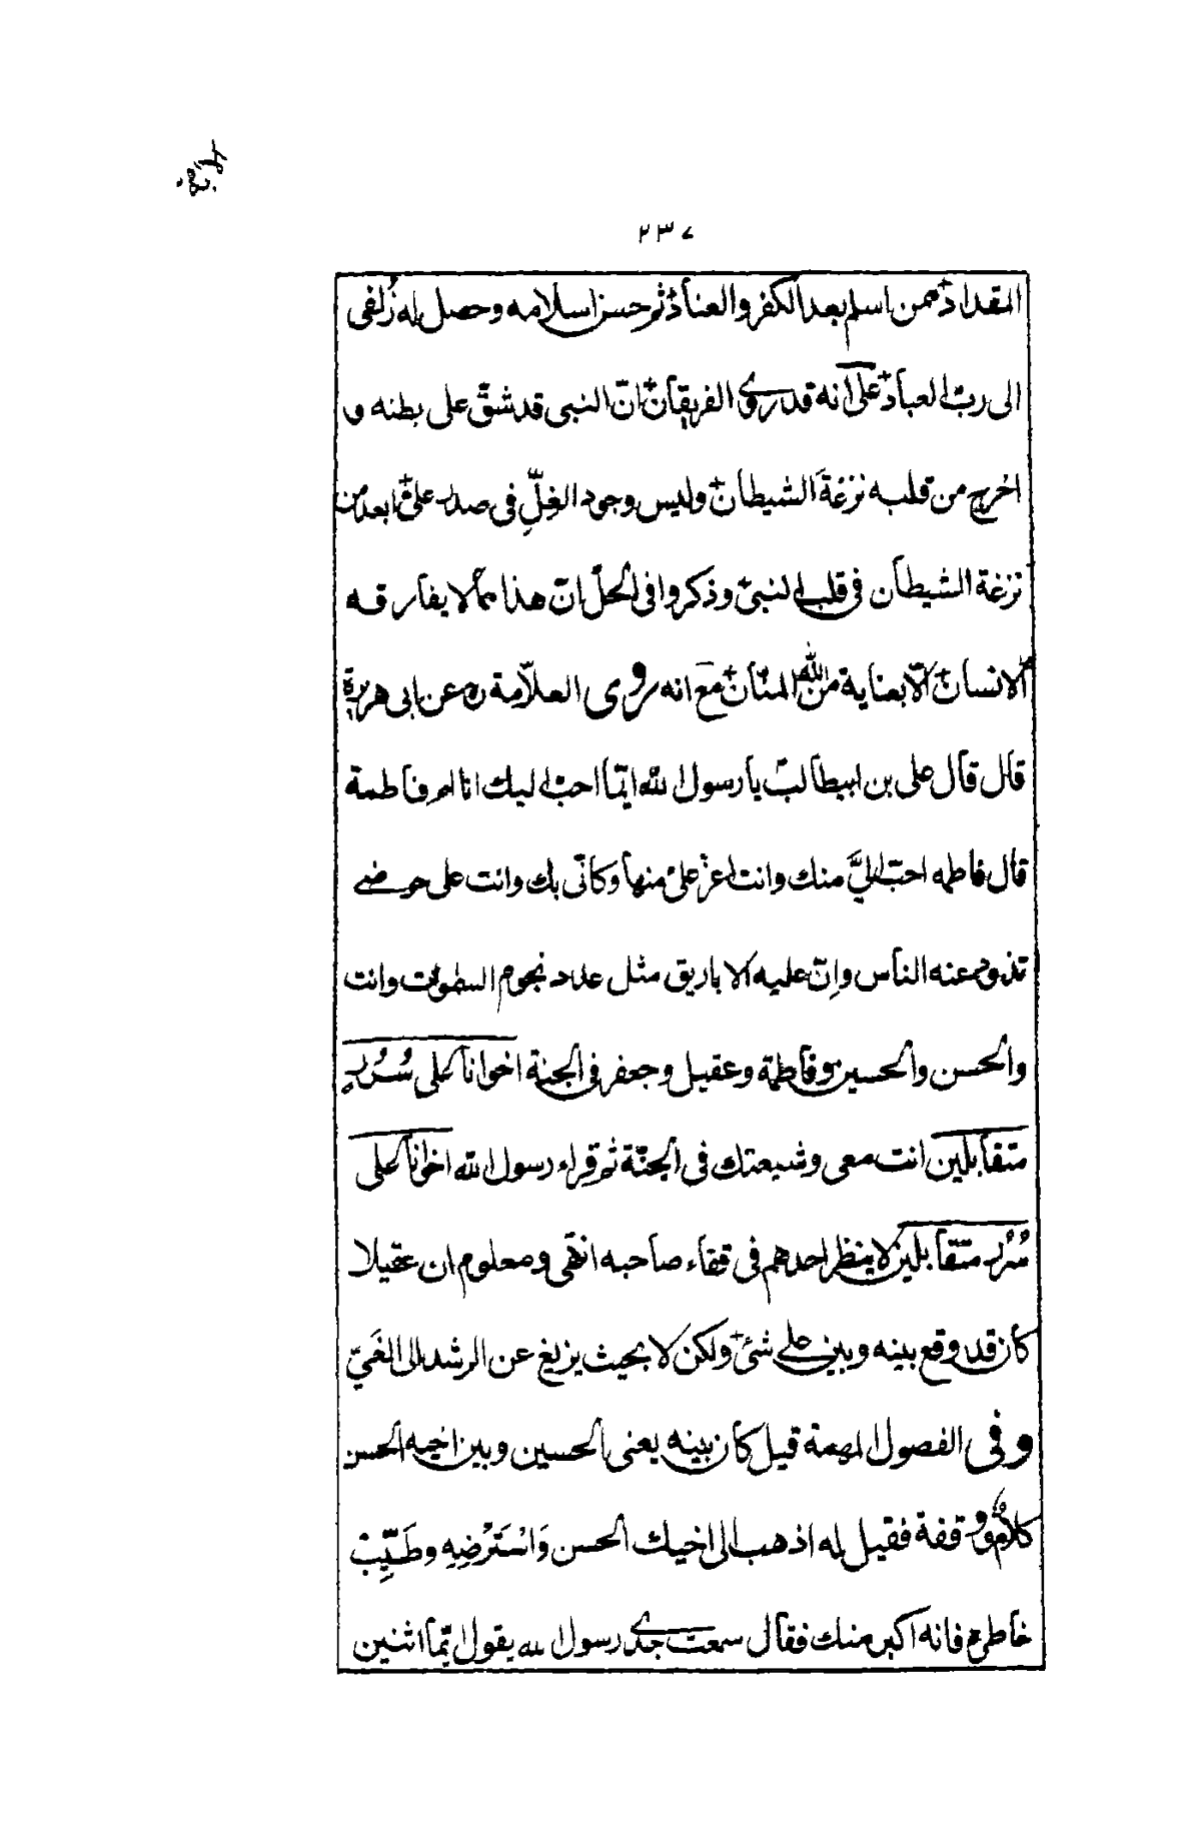 ٢٣٧
المقداد ممن اسلم بعد الكفر والعناد ثم حسن اسلامه وحصل له زُلفى
الى ربّ العباد على انه قد روى الفريقان انّ النبى قد شقّ على بطنه و
اخرج من قلبه نزغة الشيطان وليس وجود الغِلِّ فى صدر على ابعد من
نزغة الشيطان فى قلب النبى وذكروا فى الحلّ انّ هذا ممّا لا يفارقه
الانسان الّا بعناية من الله المنّان مع انه روى العلّامة ره عن ابى هريرة
قال قال على بن ابيطالب يا رسول الله ايّما احبّ اليك انا ام فاطمة
قال فاطمه احبّ الىَّ منك وانت اعزّ علىّ منها وكانّى بك وانت على حوضى
تذود عنه الناس وانّ عليه الاباريق مثل عدد نجوم السموات وانت
والحسن والحسين وفاطمة وعقيل وجعفر فى الجنة اخوانا على سُرُرٍ
متقابلين انت معى وشيعتك فى الجنّة ثم قراء رسول الله اخوانا على
سُرُر متقابلين لا ينظر احدهم فى قفاء صاحبه انتهى ومعلوم ان عقيلا
كان قد وقع بينه وبين على شئ ولكن لا بحيث يزيغ عن الرشد الى الغَىّ
وفى الفصول المهمة قيل كان بينه يعنى الحسين وبين اخيه الحسن
كلامٌ ووقفة فقيل له اذهب الى اخيك الحسن وَاسْتَرْضِهِ وطَيِّبْ
خاطره فانه اكبر منك فقال سمعت جدى رسول الله يقول ايّما اثنين